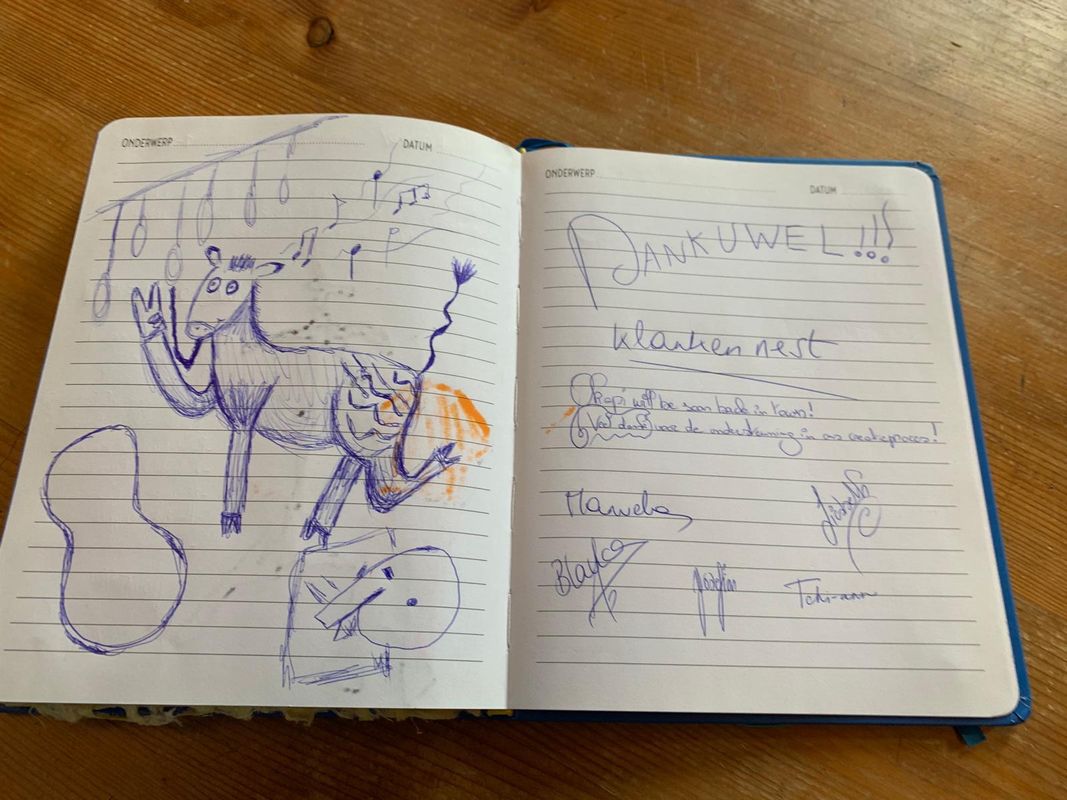 ONDERWERP
DATUM
ONDERWERP
DATUM
DANKUWEL!!!
klankennest
Okapi will be soon back in town!
Veel dank voor de ondersteuning in ons creatieproces!
Liesbeth
Blayko
Josefien